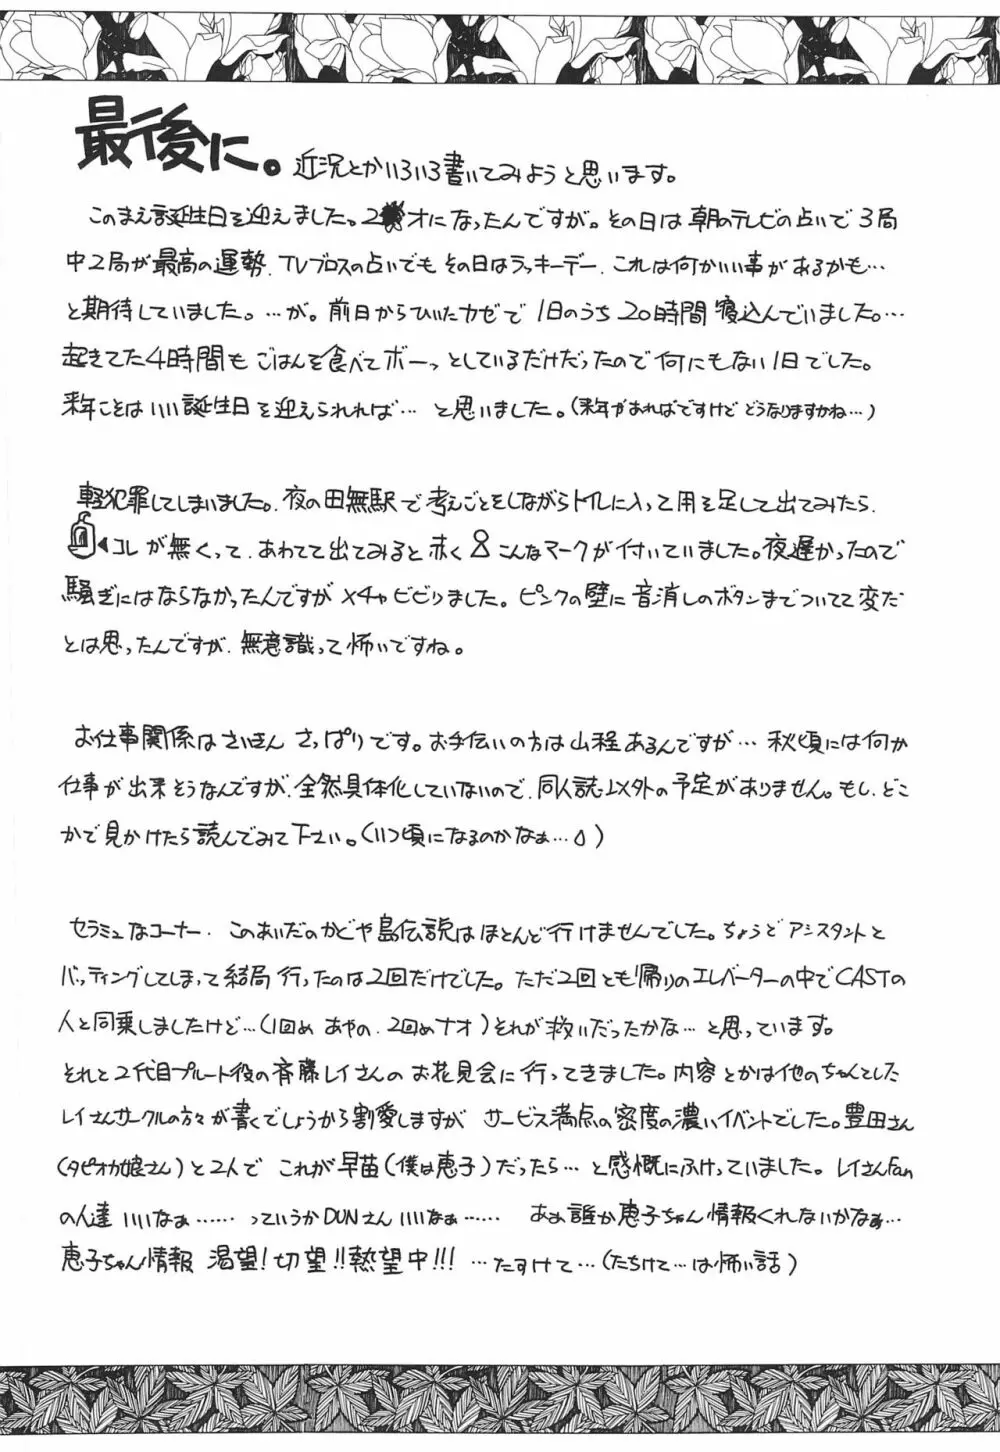 最後に。近況とかいろいろ書いてみようと思います。
このまえ誕生日を迎えました。2 才になったんですが。その日は朝のテレビの占いで3局
中2局が最高の運勢、TVブロスの占いでもその日はラッキーデー、これは何かいい事があるかも…
と期待していました。…が。前日からひいたカゼで1日のうち20時間寝込んでいました。…
起きてた4時間もごはんを食べてボーっとしているだけだったので何にもない1日でした。
来年こそはいい誕生日を迎えられれば…と思いました。(来年があればですけどどうなりますかね…)
軽犯罪してしまいました。夜の田無駅で考えごとをしながらトイレに入って用を足して出てみたら、
◀コレが無くって、あわてて出てみると赤くこんなマークが付いていました。夜遅かったので
騒ぎにはならなかったんですがメチャビビりました。ピンクの壁に音消しのボタンまでついてて変だ
とは思ったんですが、無意識って怖いですね。
お仕事関係はさいきんさっぱりです。お手伝いの方は山程あるんですが…秋頃には何か
仕事が出来そうなんですが、全然具体化していないので、同人誌以外の予定がありません。もし、どこ
かで見かけたら読んでみて下さい。(いつ頃になるのかなぁ…)
セラミュなコーナー、このあいだのかどや島伝説はほとんど行けませんでした。ちょうどアシスタントと
バッティングしてしまって結局行ったのは2回だけでした。ただ2回とも帰りのエレベーターの中でCASTの
人と同乗しましたけど…(1回めあやの、2回めナオ)それが救いだったかな…と思っています。
それと2代目プルート役の斉藤レイさんのお花見会に行ってきました。内容とかは他のちゃんとした
レイさんサークルの方々が書くでしょうから割愛しますがサービス満点の密度の濃いイベントでした。豊田さん
(タピオカ娘さん)と2人でこれが早苗(僕は恵子)だったら…と感慨にふけっていました。レイさんFan
の人達いいなぁ……っていうかDUNさんいいなぁ……あぁ誰か恵子ちゃん情報くれないかなぁ…
恵子ちゃん情報渇望!切望!!熱望中!!!…たすけて…(たちけて…は怖い話)